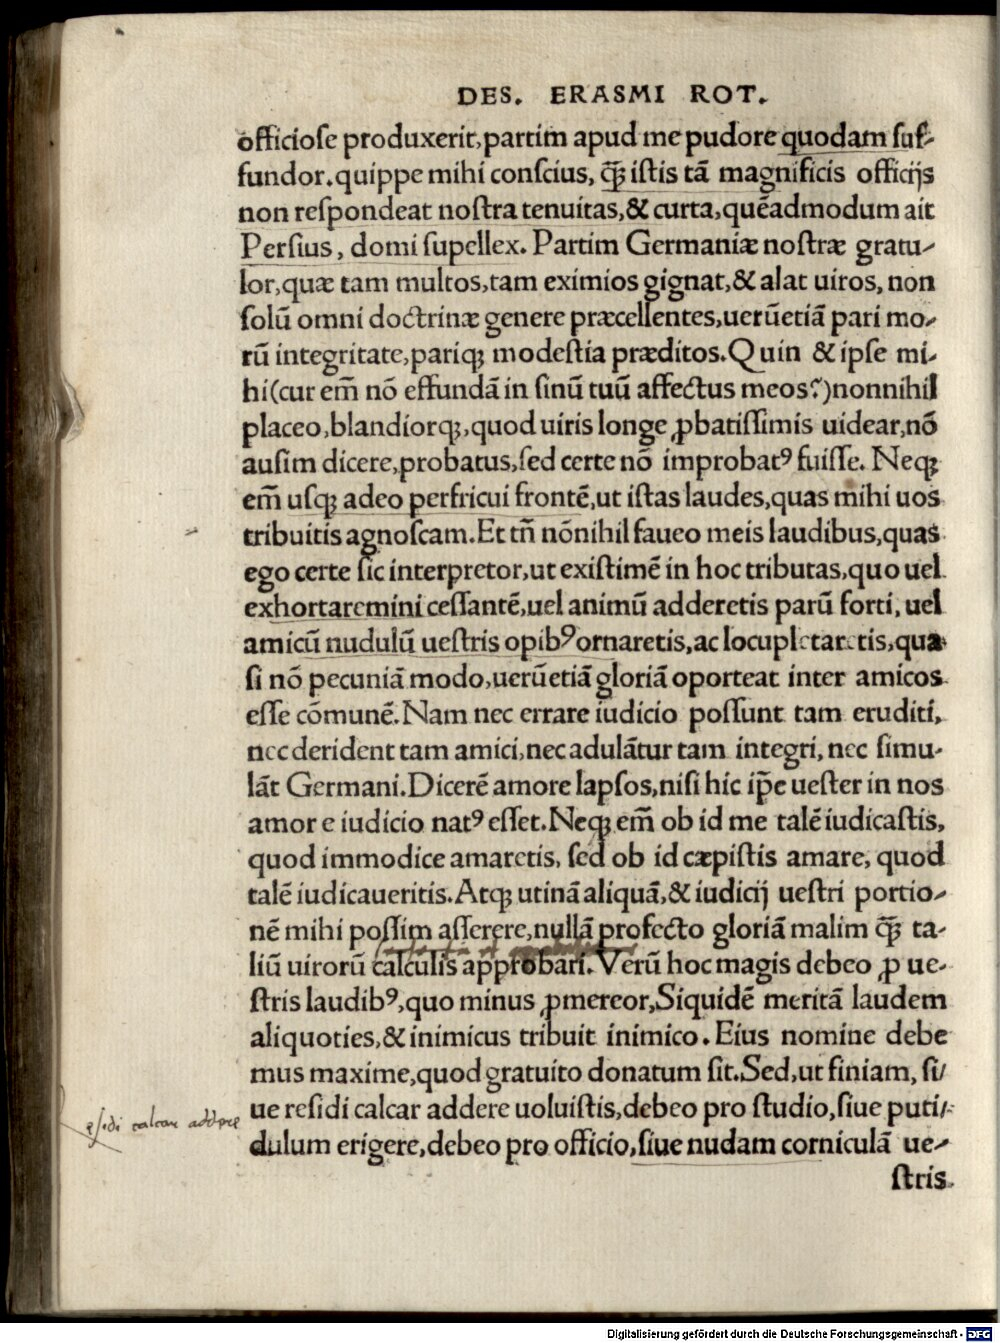 DES. ERASMI ROT.
officiose produxerit, partim apud me pudore quodam suf-
fundor. quippe mihi conscius, q̄ꝫ istis tā magnificis officijs
non respondeat nostra tenuitas, & curta, quēadmodum ait
Persius, domi supellex. Partim Germaniæ nostræ gratu-
lor, quæ tam multos, tam eximios gignat, & alat uiros, non
solū omni doctrinæ genere præcellentes, uerūetiā pari mo-
rū integritate, pariqꝫ modestia præditos. Quin & ipse mi-
hi (cur em̄ nō effundā in sinū tuū affectus meos?) nonnihil
placeo, blandiorqꝫ, quod uiris longe ꝓbatissimis uidear, nō
ausim dicere, probatus, sed certe nō improbatꝰ fuisse. Neqꝫ
em̄ usqꝫ adeo perfricui frontē, ut istas laudes, quas mihi uos
tribuitis agnoscam. Et tn̄ nōnihil faueo meis laudibus, quas
ego certe sic interpretor, ut existimē in hoc tributas, quo uel
exhortaremini cessantē, uel animū adderetis parū forti, uel
amicū nudulū uestris opibꝰ ornaretis, ac locupletaretis, qua
si nō pecuniā modo, uerūetiā gloriā oporteat inter amicos
esse cōmunē. Nam nec errare iudicio possunt tam eruditi,
nec derident tam amici, nec adulātur tam integri, nec simu-
lāt Germani. Dicerē amore lapsos, nisi hic ip̄e uester in nos
amor e iudicio natꝰ esset. Neqꝫ em̄ ob id me talē iudicastis,
quod immodice amaretis, sed ob id cæpistis amare, quod
talē iudicaueritis. Atqꝫ utinā aliquā, & iudicij uestri portio-
nē mihi possim asserere, nullā profecto gloriā malim q̄ꝫ ta-
liū uirorū calculis approbari. Verū hoc magis debeo ꝓ ue-
stris laudibꝰ, quo minus ꝓmereor, Siquidē meritā laudem
aliquoties, & inimicus tribuit inimico. Eius nomine debe
mus maxime, quod gratuito donatum sit. Sed, ut finiam, si-
ue residi calcar addere uoluistis, debeo pro studio, siue puti-
esidi calcar addere
dulum erigere, debeo pro officio, siue nudam corniculā ue-
stris
Digitalisierung gefördert durch die Deutsche Forschungsgemeinschaft - DFG